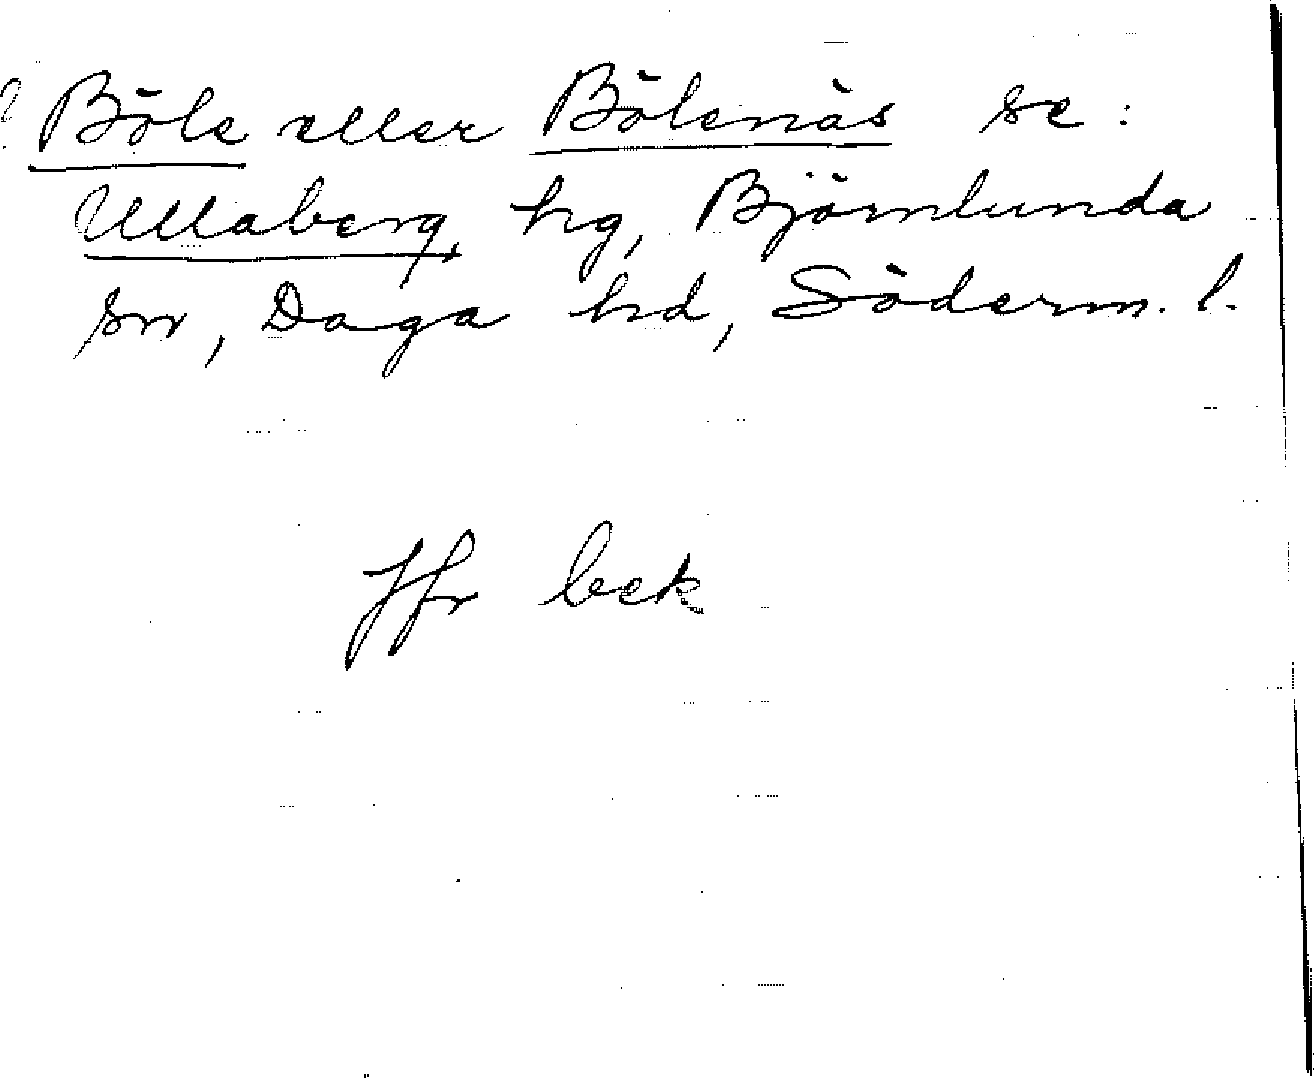 Böle eller Bölenäs se:
Ullaberg, hg, Björnlunda
sn, Daga hd, Söderm. l.
Jfr bek